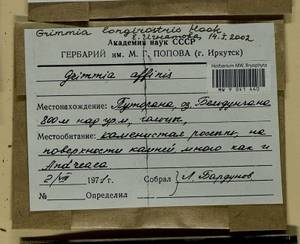 Grimmia longirostris Hook
Е. Игнатова 14.3.2002
Академия наук СССР
ГЕРБАРИЙ им. М. Г. ПОПОВА (г. Иркутск)
Herbarium MW, Bryophyta
MW 9 011 440
Grimmia affinis
Местонахождение: Путорана оз.
800м над ур.м,
Местообитание: каменистые россыпи, на
поверхности камней много как и
Andreaea
2/VII 1971г Собрал Л. Бардунов
№ Определил